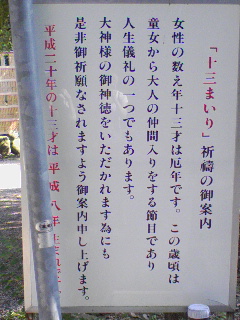 「十三まいり」祈祷の御案内
女性の数え年十三才は厄年です。この歳頃は
童女から大人の仲間入りをする節目であり
人生儀礼の一つでもあります。
大神様の御神徳をいただかれます為にも
是非御祈願なされますよう御案内申し上げます。
平成二十年の十三才は 平成八年生まれ